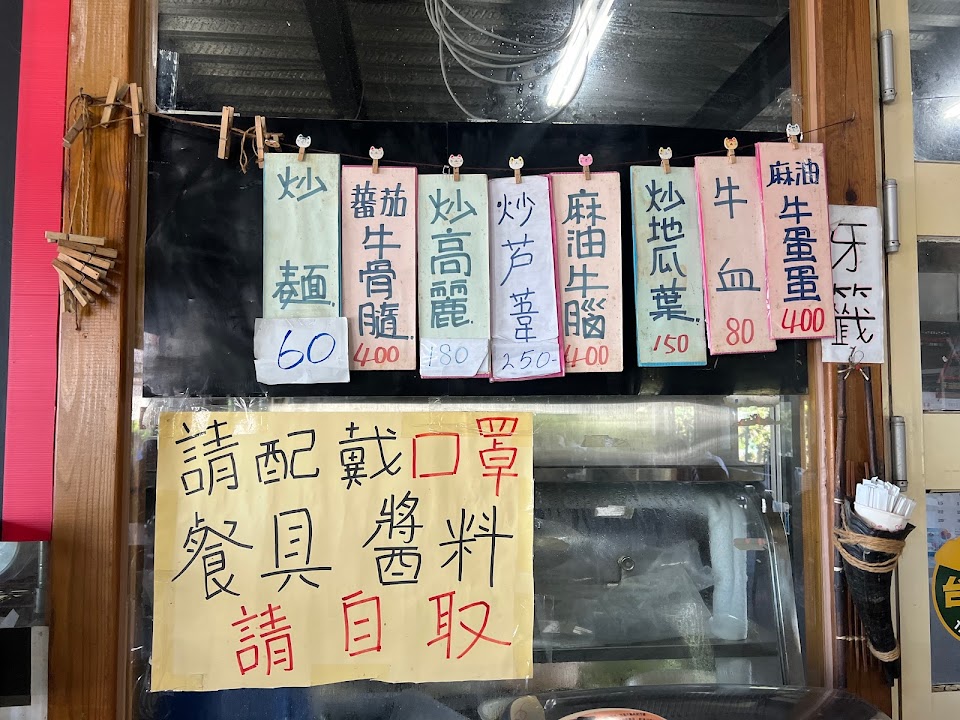 炒麵
60
蕃茄牛骨隨
400
炒高麗
180
炒芦葦
250-
麻油牛腦
400
炒地瓜葉
150
牛血
80
麻油牛蛋蛋
400
牙籤
請配戴口罩
餐具醬料
請自取
台